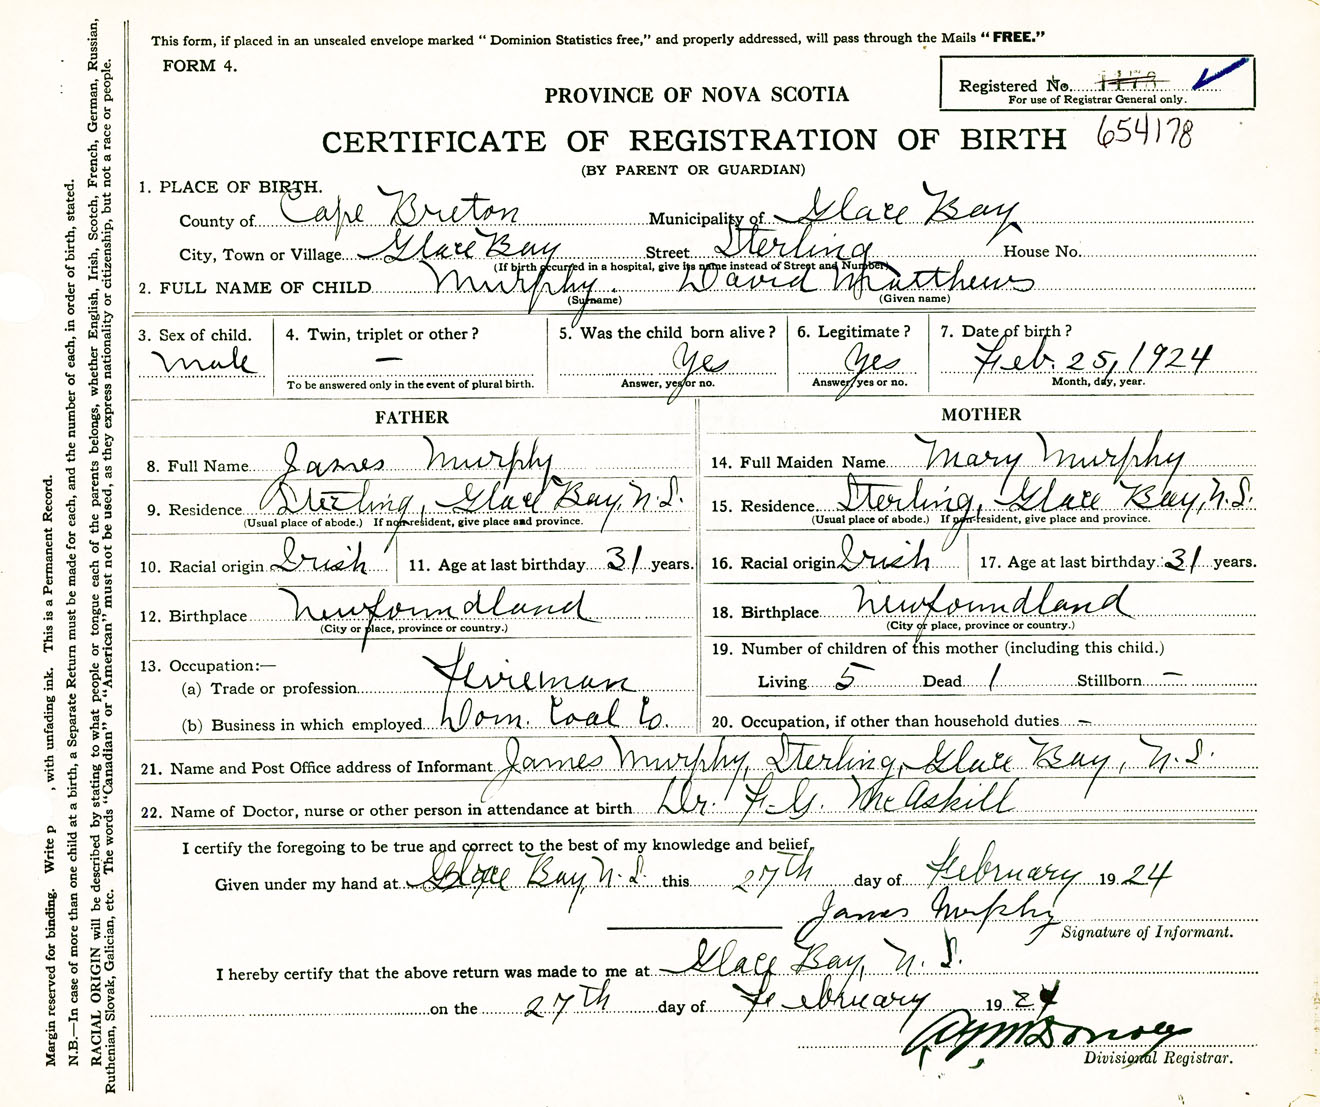 This form, if placed in an unsealed envelope marked " Dominion Statistics free," and properly addressed, will pass through the Mails " FREE."
FORM 4.
Registered No. 1178
For use of Registrar General only.
PROVINCE OF NOVA SCOTIA
CERTIFICATE OF REGISTRATION OF BIRTH 654178
(BY PARENT OR GUARDIAN)
1. PLACE OF BIRTH.
County of Cape Breton Municipality of Glace Bay
City, Town or Village Glace Bay Street Sterling House No.
(If birth occurred in a hospital, give its name instead of Street and Number)
2. FULL NAME OF CHILD Murphy. David Matthews
(Surname) (Given name)
3. Sex of child. 4. Twin, triplet or other ? 5. Was the child born alive ? 6. Legitimate ? 7. Date of birth ?
male — Yes Yes Feb. 25, 1924
To be answered only in the event of plural birth. Answer, yes or no. Answer yes or no. Month, day, year.
FATHER MOTHER
8. Full Name James Murphy 14. Full Maiden Name Mary Murphy
9. Residence Sterling, Glace Bay, N.S. 15. Residence Sterling, Glace Bay, N.S.
(Usual place of abode.) If non-resident, give place and province. (Usual place of abode.) If non-resident, give place and province.
10. Racial origin Irish 11. Age at last birthday 31 years. 16. Racial origin Irish 17. Age at last birthday 31 years.
12. Birthplace Newfoundland 18. Birthplace Newfoundland
(City or place, province or country.) (City or place, province or country.)
13. Occupation:— 19. Number of children of this mother (including this child.)
(a) Trade or profession Fireman Living 5 Dead 1 Stillborn —
(b) Business in which employed Dom. Coal Co. 20. Occupation, if other than household duties —
21. Name and Post Office address of Informant James Murphy, Sterling, Glace Bay, N.S.
22. Name of Doctor, nurse or other person in attendance at birth Dr. F.G. McAskill
I certify the foregoing to be true and correct to the best of my knowledge and belief,
Given under my hand at Glace Bay, N.S. this 27th day of February 1924
James Murphy
Signature of Informant.
I hereby certify that the above return was made to me at Glace Bay, N.S.
on the 27th day of February 1924
Divisional Registrar.
Margin reserved for binding. Write p , with unfading ink. This is a Permanent Record.
N.B.—In case of more than one child at a birth, a Separate Return must be made for each, and the number of each, in order of birth, stated.
RACIAL ORIGIN will be described by stating to what people or tongue each of the parents belongs, whether English, Irish, Scotch, French, German, Russian,
Ruthenian, Slovak, Galician, etc. The words "Canadian" or "American" must not be used, as they express nationality or citizenship, but not a race or people.